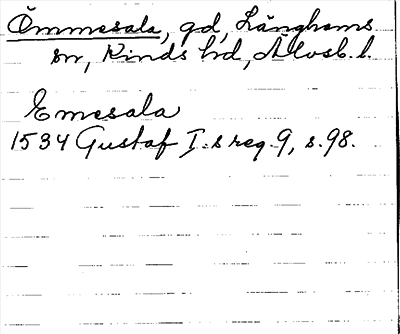 Ömmesala, gd, Länghems
sn, Kinds hd, Älvsb. l.
Emesala
1534 Gustaf I.s reg. 9, s. 98.